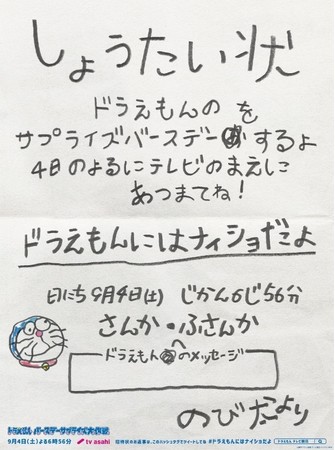 しょうたい状
ドラえもんの を
サプライズバースデーするよ
4日のよるにテレビのまえに
あつまてね!
ドラえもんにはナイショだよ
日にち9月4日(土) じかん6じ56分
さんか・ふさんか
ドラえもんへのメッセージ
のびたより
ドラえもん バースデーサプライズ大作戦
9月4日(土)よる6時56分
tv asahi
#ドラえもんにはナイショだよ